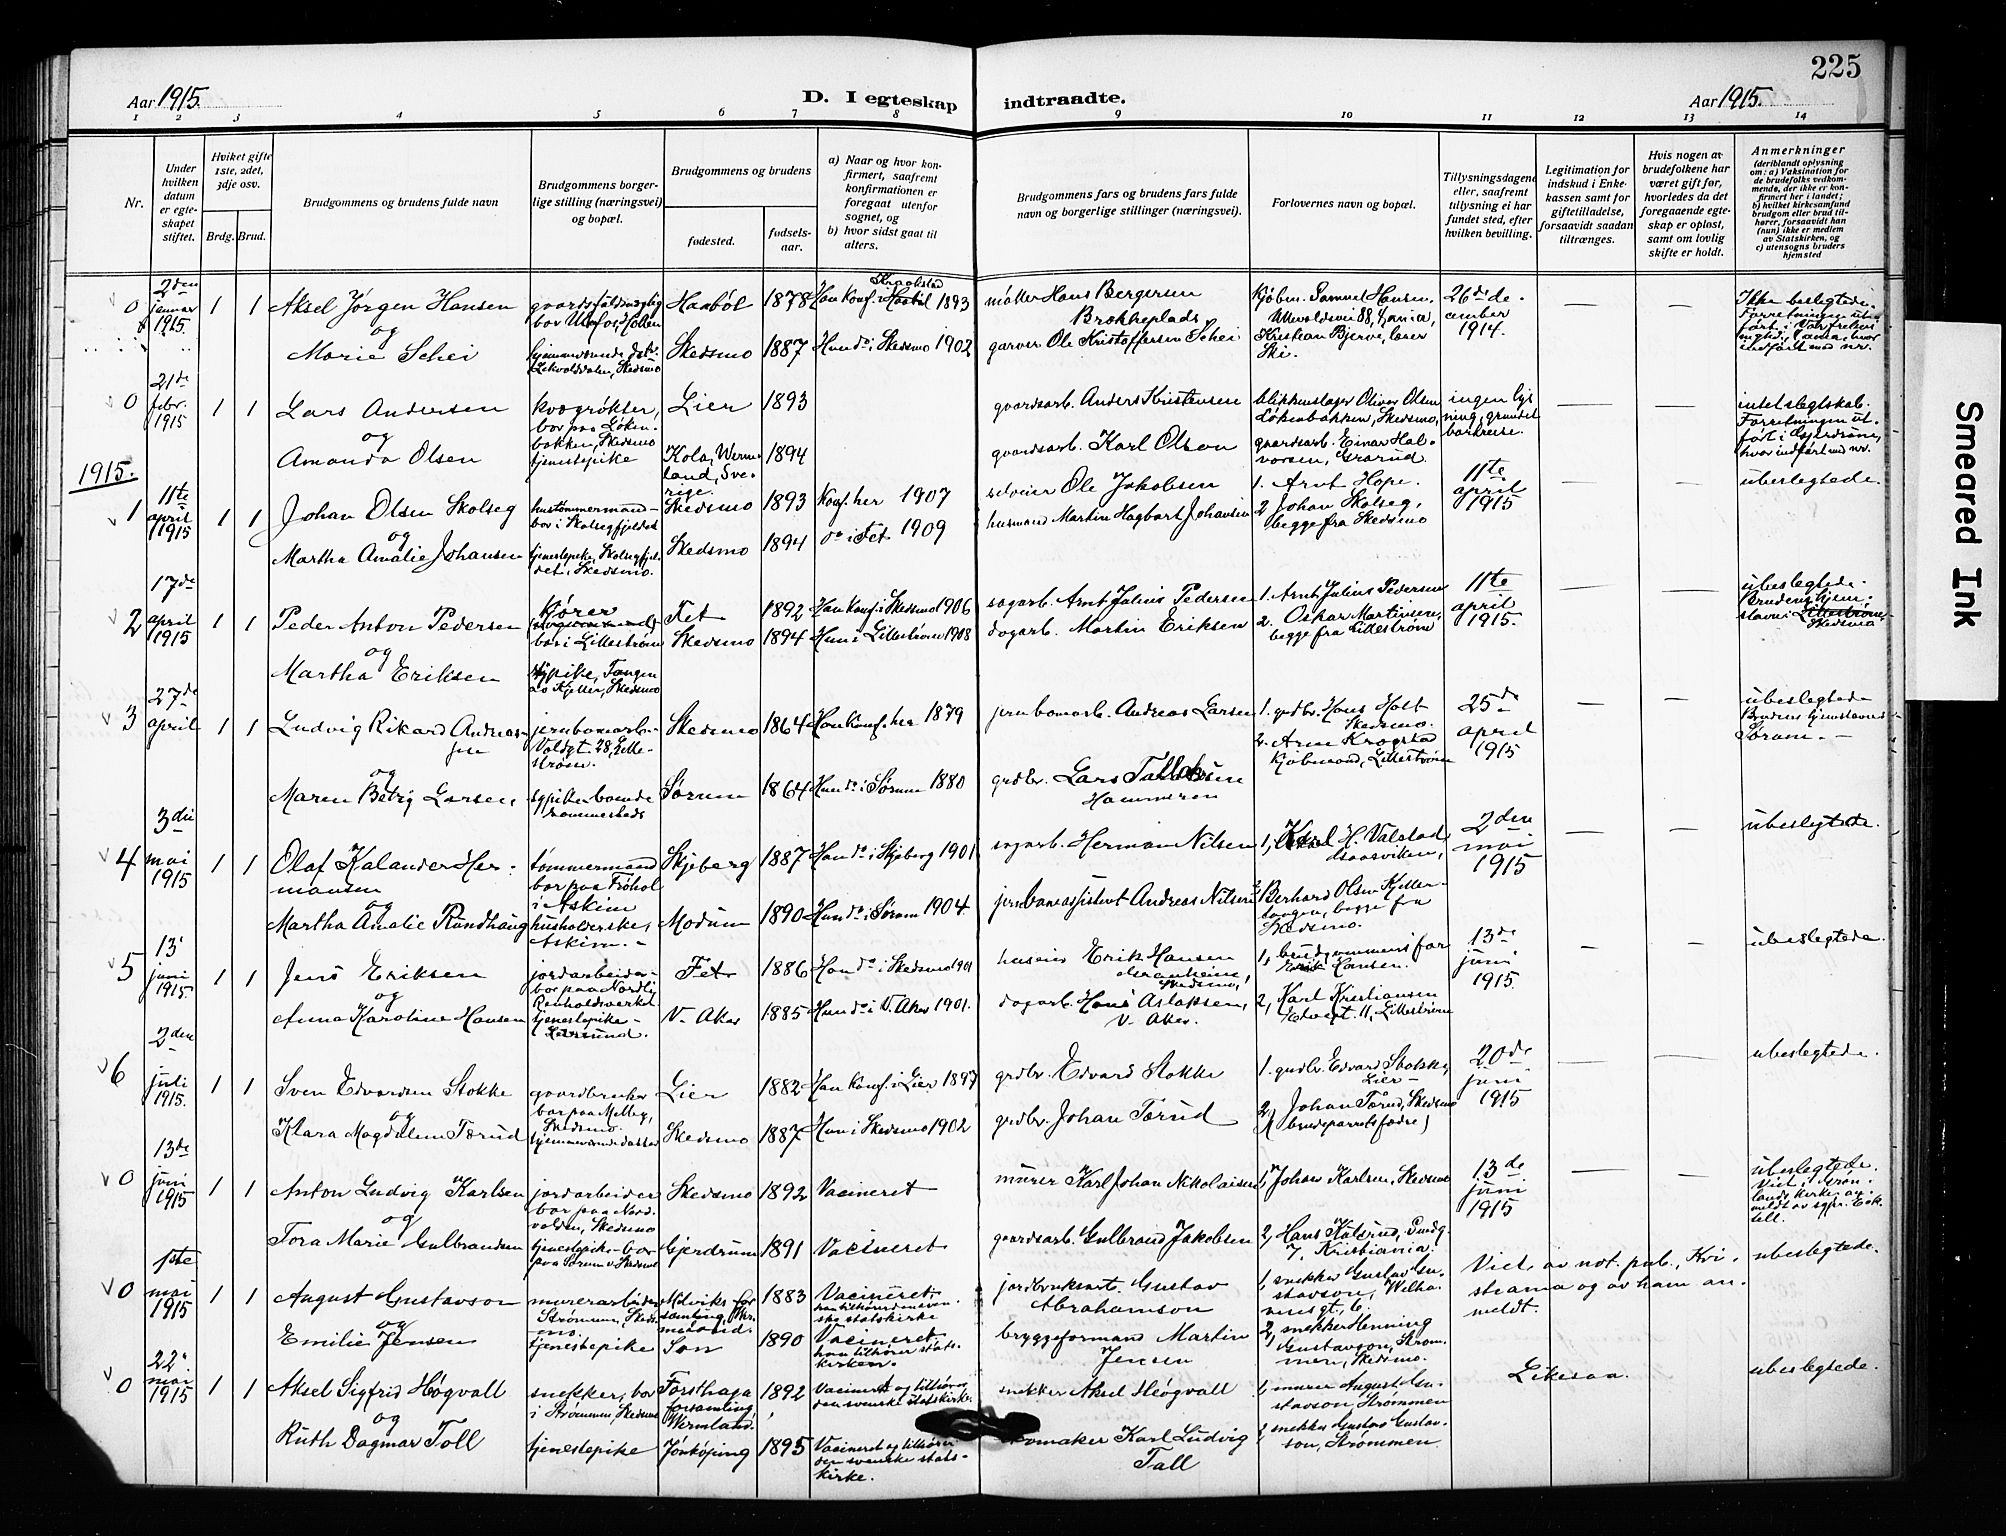 225
Aar 1915.
D. I egteskap
indtraadte.
Aar 1915.
1 2 3 4 5 6 7 8 9 10 11 12 13 14
Nr.
Under hvilken datum er egteskapet stiftet.
Hviket gifte 1ste, 2det, 3dje osv.
Brdg. Brud.
Brudgommens og brudens fulde navn
Brudgommens borgerlige stilling (næringsvei) og bopæl.
Brudgommens og brudens
fødested.
fødselsaar.
a) Naar og hvor konfirmert, saafremt konfirmationen er foregaat utenfor sognet, og
b) hvor sidst gaat til alters.
Brudgommens fars og brudens fars fulde navn og borgerlige stillinger (næringsvei).
Forlovernes navn og bopæl.
Tillysningsdagene eller, saafremt tillysning ei har fundet sted, efter hvilken bevilling.
Legitimation for indskud i Enkekassen samt for giftetilladelse, forsaavidt saadan tiltrænges.
Hvis nogen av brudefolkene har været gift før, hvorledes da det foregaaende egteskap er opløst, samt om lovlig skifte er holdt.
Anmerkninger
(deriblandt oplysning om: a) Vaksination for de brudefolks vedkommende, der ikke er konfirmert her i landet;
b) hvilket kirkesamfund brudgom eller brud tilhører, forsaavidt han (hun) ikke er medlem av Statskirken, og
c) utensogns bruders hjemsted
0 2den januar 1915. 1 1 Aksel Jørgen Hansen Haabøl 1878 Han konf. i Kraakstad 1893 møller Hans Bergersen Brækkeplads kjøbm. Samuel Hansen, Ullevoldsvei 88, Kr.ania, 26de december 1914. — — Ikke beslegtede.
og
Marie Schei Skedsmo 1887 Hun do i Skedsmo 1902 garver Ole Kristoffersen Schei Kristian Bjerve, lærer Ski.
0 21de febr. 1915 1 1 Lars Andersen kvægrøkter, bor paa Løkenbakken, Skedsmo Lier 1893 gaardsarb. Anders Kristensen blikkenslager Oliver Olsen Løkenbakken, Skedsmo, ingen lysning, grundet barkreise. — — intet slegtskab. Forretningen utført i Gjerdrum, hvor indført med nr.
og
Amanda Olsen tjenestepike Kola, Wermeland, Sverige. 1894 gaardsarb. Karl Olson gaardsarb. Einar Halvorsen, Grarud.
1915.
1 11te april 1915 1 1 Johan Olsen Skolseg bor i Skolsegfjeldet Skedsmo 1893 Konf. her 1907 selveier Ole Jakobsen 1. Arnt Hope. 11te april 1915 — — ubeslegtede.
og
Martha Amalie Johansen tjenestepike, Skolsegfjeldet, Skedsmo. Skedsmo 1894 do i Fet 1909 husmand Martin Hagbart Johansen 2 Johan Skolseg, begge fra Skedsmo
2 17de april 1915 1 1 Peder Anton Pedersen kjører bor i Lillestrøm Fet 1892 Han konf. i Skedsmo 1906 sagarb. Arnt Julius Pedersen 1. Arnt Julius Pedersen 11te april 1915. — — ubeslegtede. Brudens hjemstavn: Lillestrøm, Skedsmo
og
Martha Eriksen sypike, Tangen as Kjeller, Skedsmo Skedsmo 1894 Hun i Lillestrøm 1908 dagarb. Martin Eriksen 2. Oskar Martinsen, begge fra Lillestrøm
3 27de april 1 1 Ludvig Rikard Andreassen jernbanearb. Voldgt. 28, Lillestrøm. Skedsmo 1864 Han konf. her 1879 jernbanearb. Andreas Larsen 1. grdbr. Hans Holt Skedsmo. 25de april 1915 — — ubeslegtede Brudens hjemstavn Sørum.
og
Maren Betzy Larsen, sypike boende sammesteds Sørum 1864 Hun do i Sørum 1880 grdbr. Lars Hammeren 2. Arne Krogstad kjøbmand, Lillestrøm
4 3die mai 1915 1 1 Olaf Kalander Hermansen tømmermand bor paa Frøhol i Askim Skjeberg 1887 Han do i Skjeberg 1901 sagarb. Herman Nilsen 1, Karl H. Valstad, 2den mai 1915 — — ubeslegtede.
og
Martha Amalie Rundhaug husholderske, Askim. Modum 1890 Hun do i Sørum 1904. jernbaneassistent Andreas Nilsen 2 Berhard Olsen Kjellerhaugen, begge fra Skedsmo.
5 13 juni 1915. 1 1 Jens Eriksen jordarbeider bor paa Nordli, Renholdsverket Fet 1886 Han do i Skedsmo 1901 Erik Hansen Skedsmo, 1, brudgommens far Erik Hansen. 13de juni 1915. — — ubeslegtede.
og
Anna Karoline Hansen tjenestepike V. Aker 1885 Hun do i V. Aker 1901. dagarb. Hans Aslaksen, V. Aker. 2, Karl Kristiansen 11, Lillestrøm
6 2den juli 1915. 1 1 Sven Edvardsen Stokke gaardbruker bor paa Melby, Skedsmo. Lier 1882 Han konf. i Lier 1897 grdbr. Edvard Stokke 1. grdbr. Edvard Stokke, Lier 20de juni 1915 — — ubeslegtede.
og
Klara Magdalene Tærud hjemmeværende datter Skedsmo 1887 Hun i Skedsmo 1902 grdbr. Johan Tærud 2, Johan Tærud, Skedsmo (brudeparrets fædre)
0 13de juni 1915 1 1 Anton Ludvig Karlsen jordarbeider bor paa Nordvolden, Skedsmo Skedsmo 1892 Vacineret murer Karl Johan Nikolaisen 1, Johan Karlsen, Skedsmo 13de juni 1915 — — ubeslegtede.
og
Tora Marie Gulbrandsen tjenestepike bor paa Sørum i Skedsmo Gjerdrum 1891 Vacineret gaardsarb. Gulbrand Jakobsen 2, Hans 7, Kristiania.
0 1ste mai 1915 1 1 August Gustavson murerarbeider Strømmen, Skedsmo. 1883 Vacineret. han tilhører den svenske statskirke jordbruksarb. Gustav Abrahamson 1, snekker Gustav Gustavson, Wilhelmsgt. 6. Viet av not. pub., Kristiania og av ham anmeldt. ubeslegtede.
og
Emilie Jensen tjenestepike Son 1890 Vacineret. hun tilhører statskirken. bryggeformand Martin Jensen 2, snekker Henning Gustavson, Strømmen, Skedsmo.
0 22 mai 1915 1 1 Aksel Sigfrid Högvall snekker, bor i Strømmen, Skedsmo Forshaga forsamling, Wermland. 1892 Vacineret og tilhører den svenske statskirke. snekker Aksel Högvall 1, murer August Gustavson, Strømmen Likesaa. ubeslegtede.
og
Ruth Dagmar Tall tjenestepike Jönköping 1895 Vacineret og tilhører den svenske statskirke. Karl Ludvig Tall 2, snekker Gustav Gustavson, Strømmen.
Smeared Ink